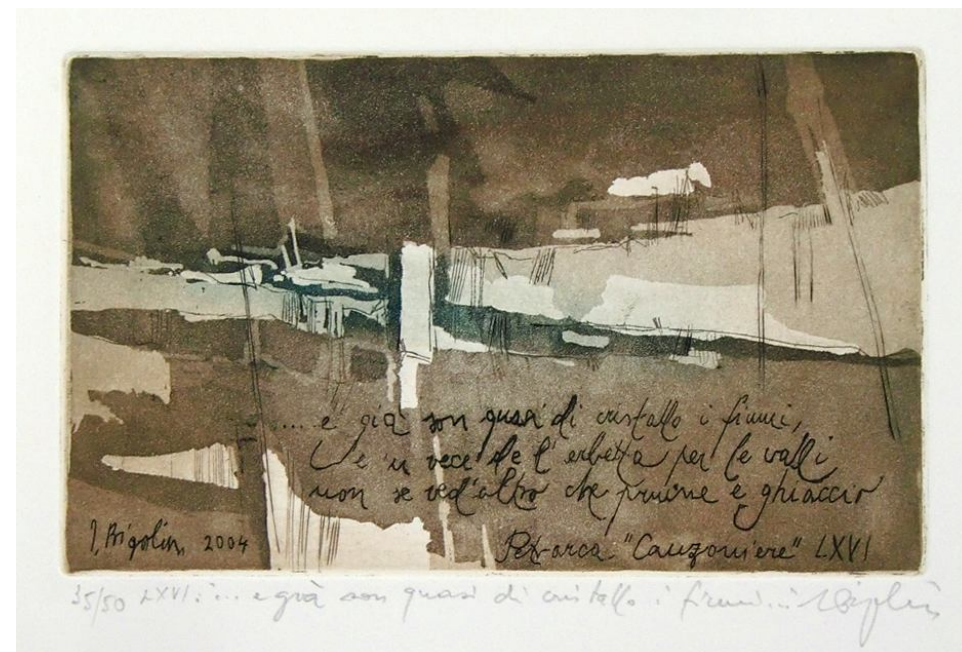 ... e già son quasi di cristallo i fiumi,
e 'n vece de l'erbetta per le valli
non se ved'altro che pruine e ghiaccio
Petrarca "Canzoniere" LXVI
I. Bigolin 2004
35/50 LXVI: ... e già son quasi di cristallo i fiumi...